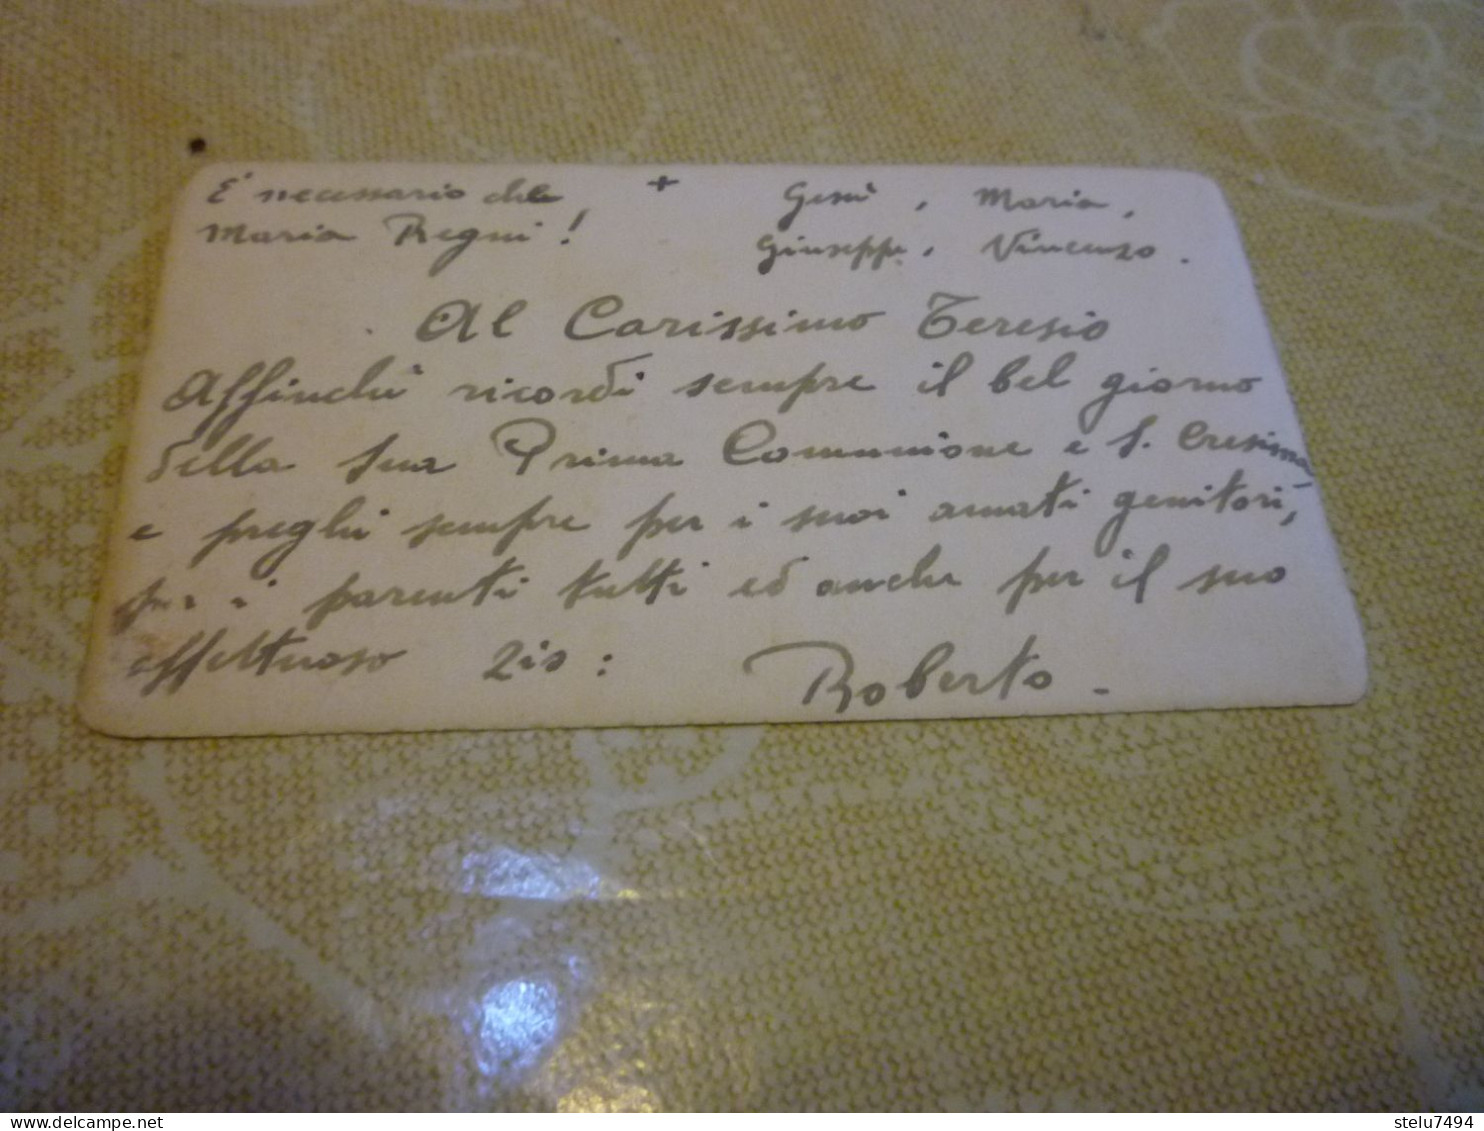 E' necessario che + Gesù, Maria,
Maria Regni! Giuseppe, Vincenzo.
Al Carissimo Teresio
Affinchè ricordi sempre il bel giorno
della sua Prima Comunione e S. Cresima
e preghi sempre per i suoi amati genitori,
per i parenti tutti ed anche per il suo
affettuoso Zio: Roberto.
stelu7494